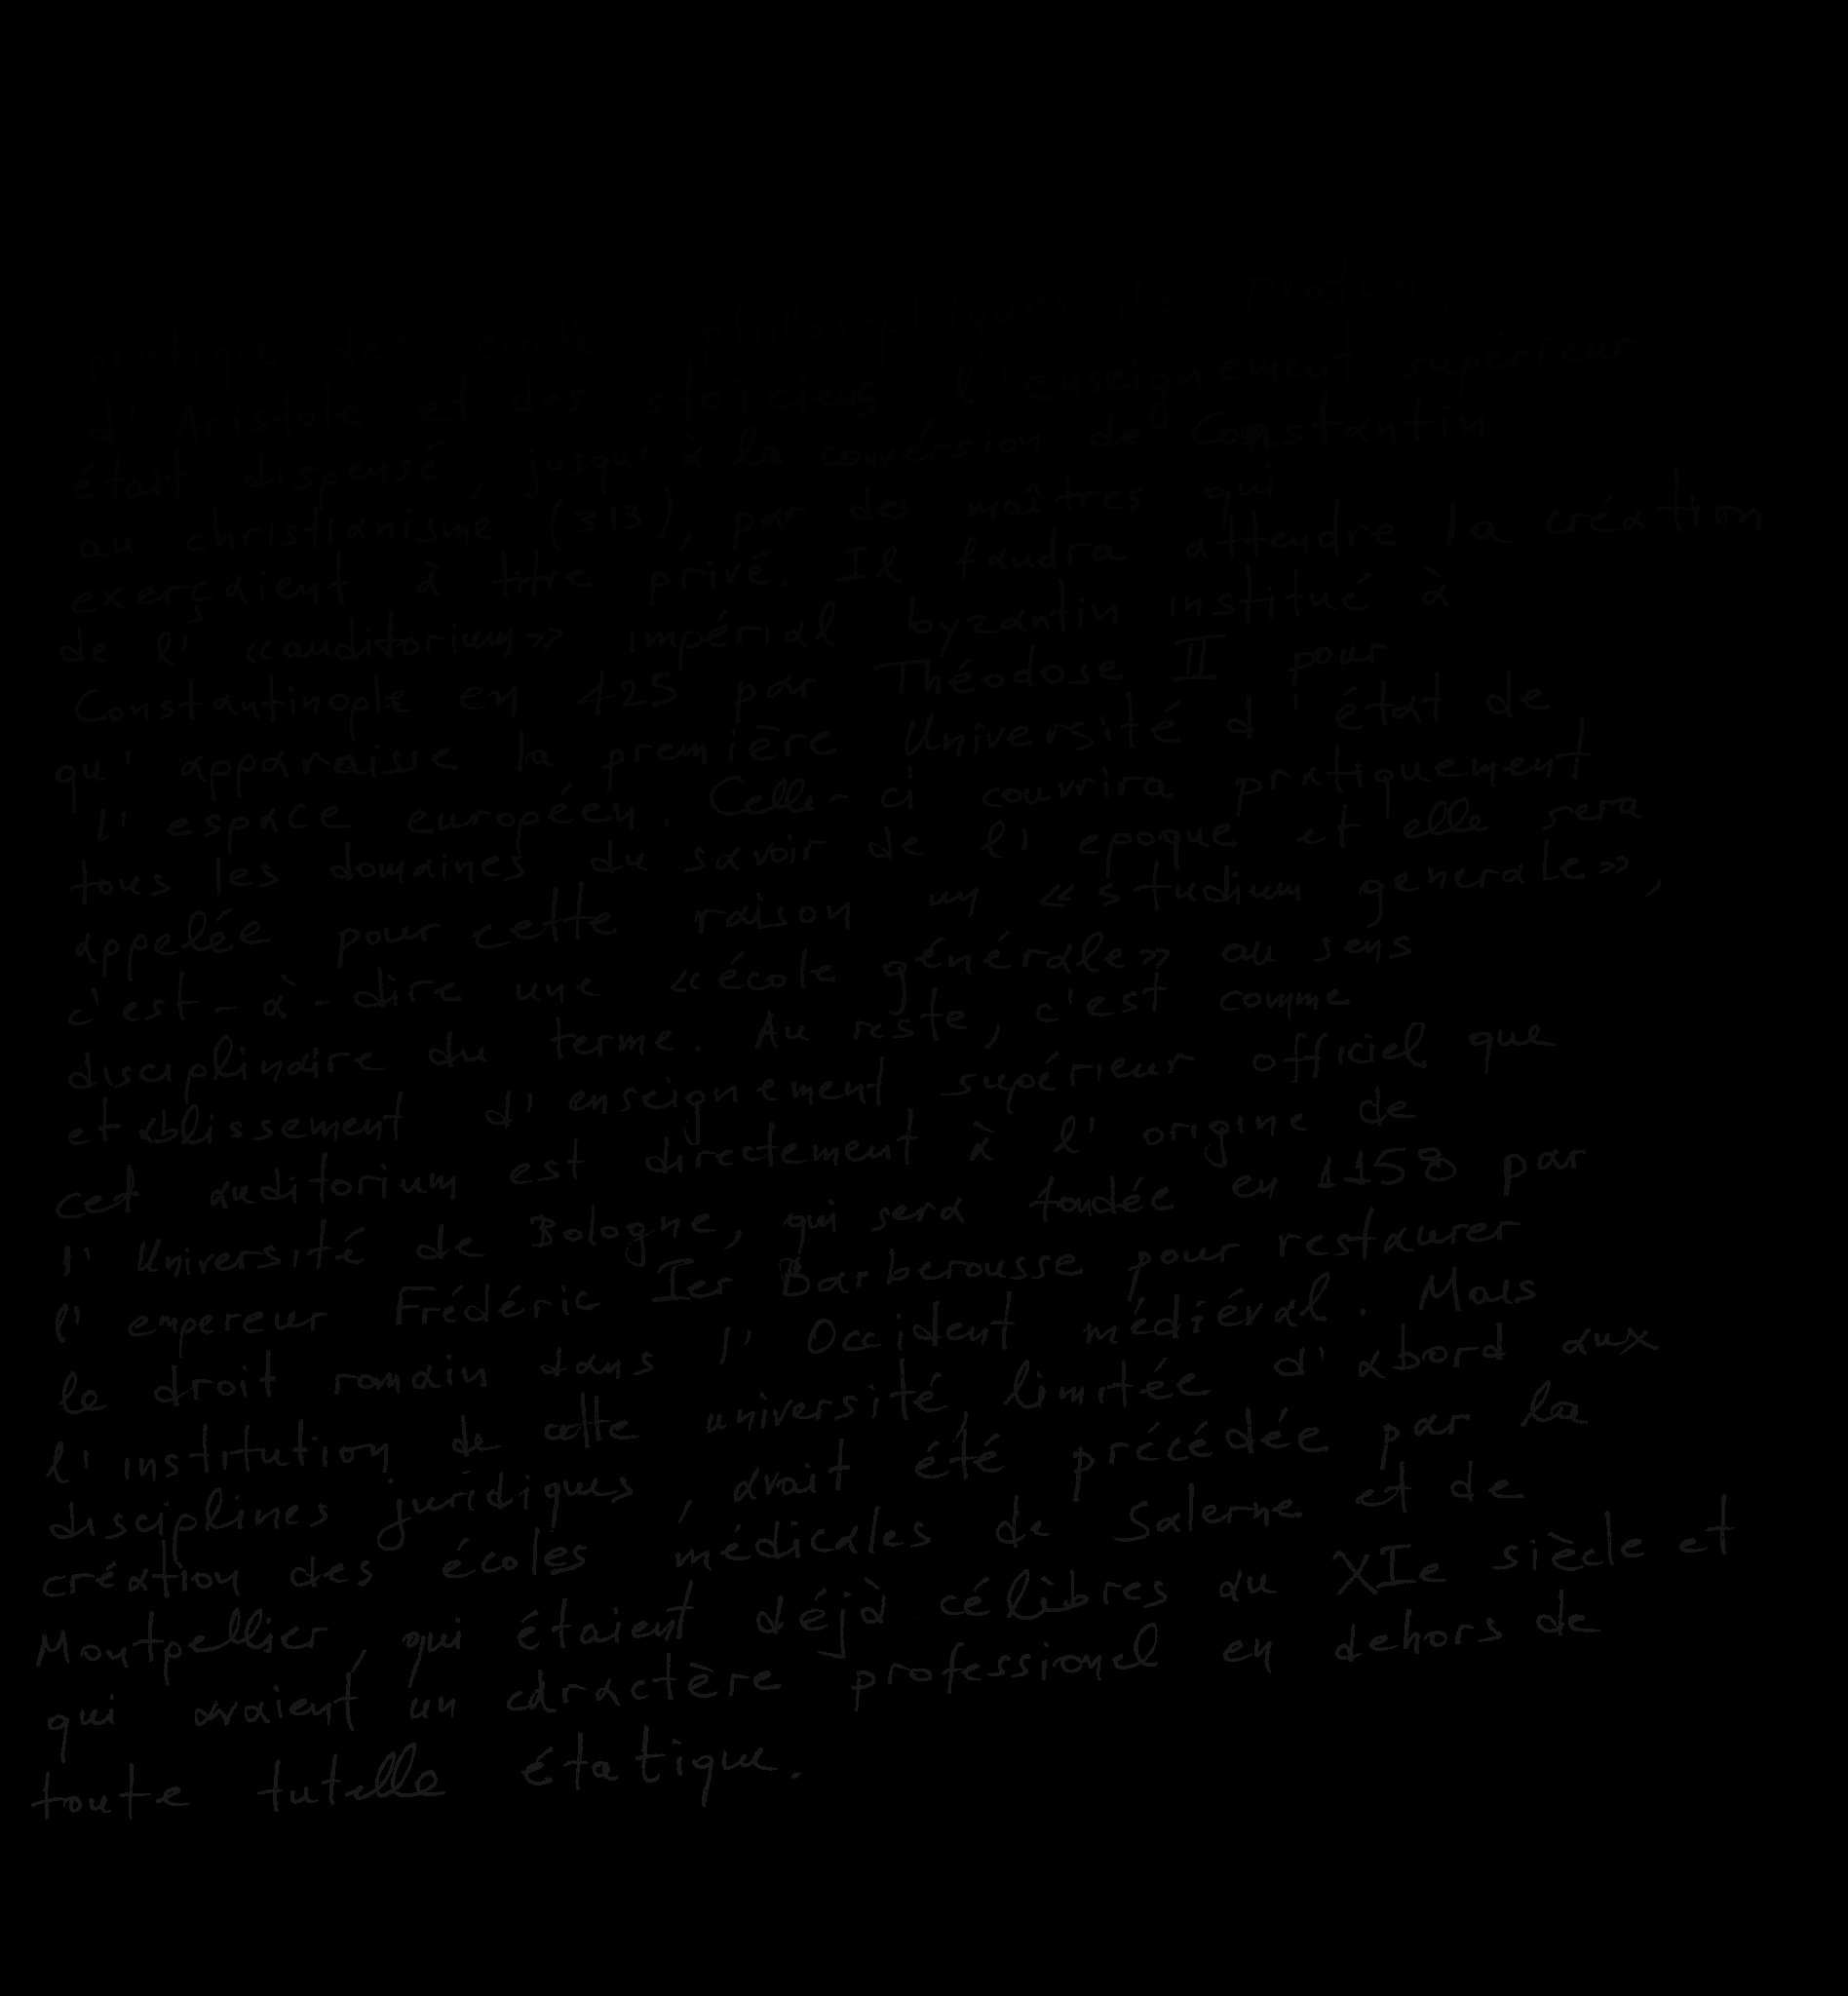 pratique des écoles philosophiques de Platon,
d'Aristote et des stoïciens l'enseignement supérieur
était dispensé, jusqu'à la conversion de Constantin
au christianisme (313), par des maîtres qui
exerçaient à titre privé. Il faudra attendre la création
de l' «auditorium» impérial byzantin institué à
Constantinople en 425 par Théodose II pour
qu'apparaisse la première Université d'état de
l'espace européen. Celle-ci couvrira pratiquement
tous les domaines du savoir de l'epoque et elle sera
appelée pour cette raison un «studium generale»,
c'est-à-dire une «école générale» au sens
disciplinaire du terme. Au reste, c'est comme
etablissement d'enseignement supérieur officiel que
cet auditorium est directement à l'origine de
l'Université de Bologne, qui sera fondée en 1158 par
l'empereur Frédéric Ier Barberousse pour restaurer
le droit romain dans l'Occident médiéval. Mais
l'institution de cette université, limitée d'abord aux
disciplines juridiques, avait été précédée par la
création des écoles médicales de Salerne et de
Montpellier, qui étaient déjà célèbres au XIe siècle et
qui avaient un caractère professionel en dehors de
toute tutelle étatique.